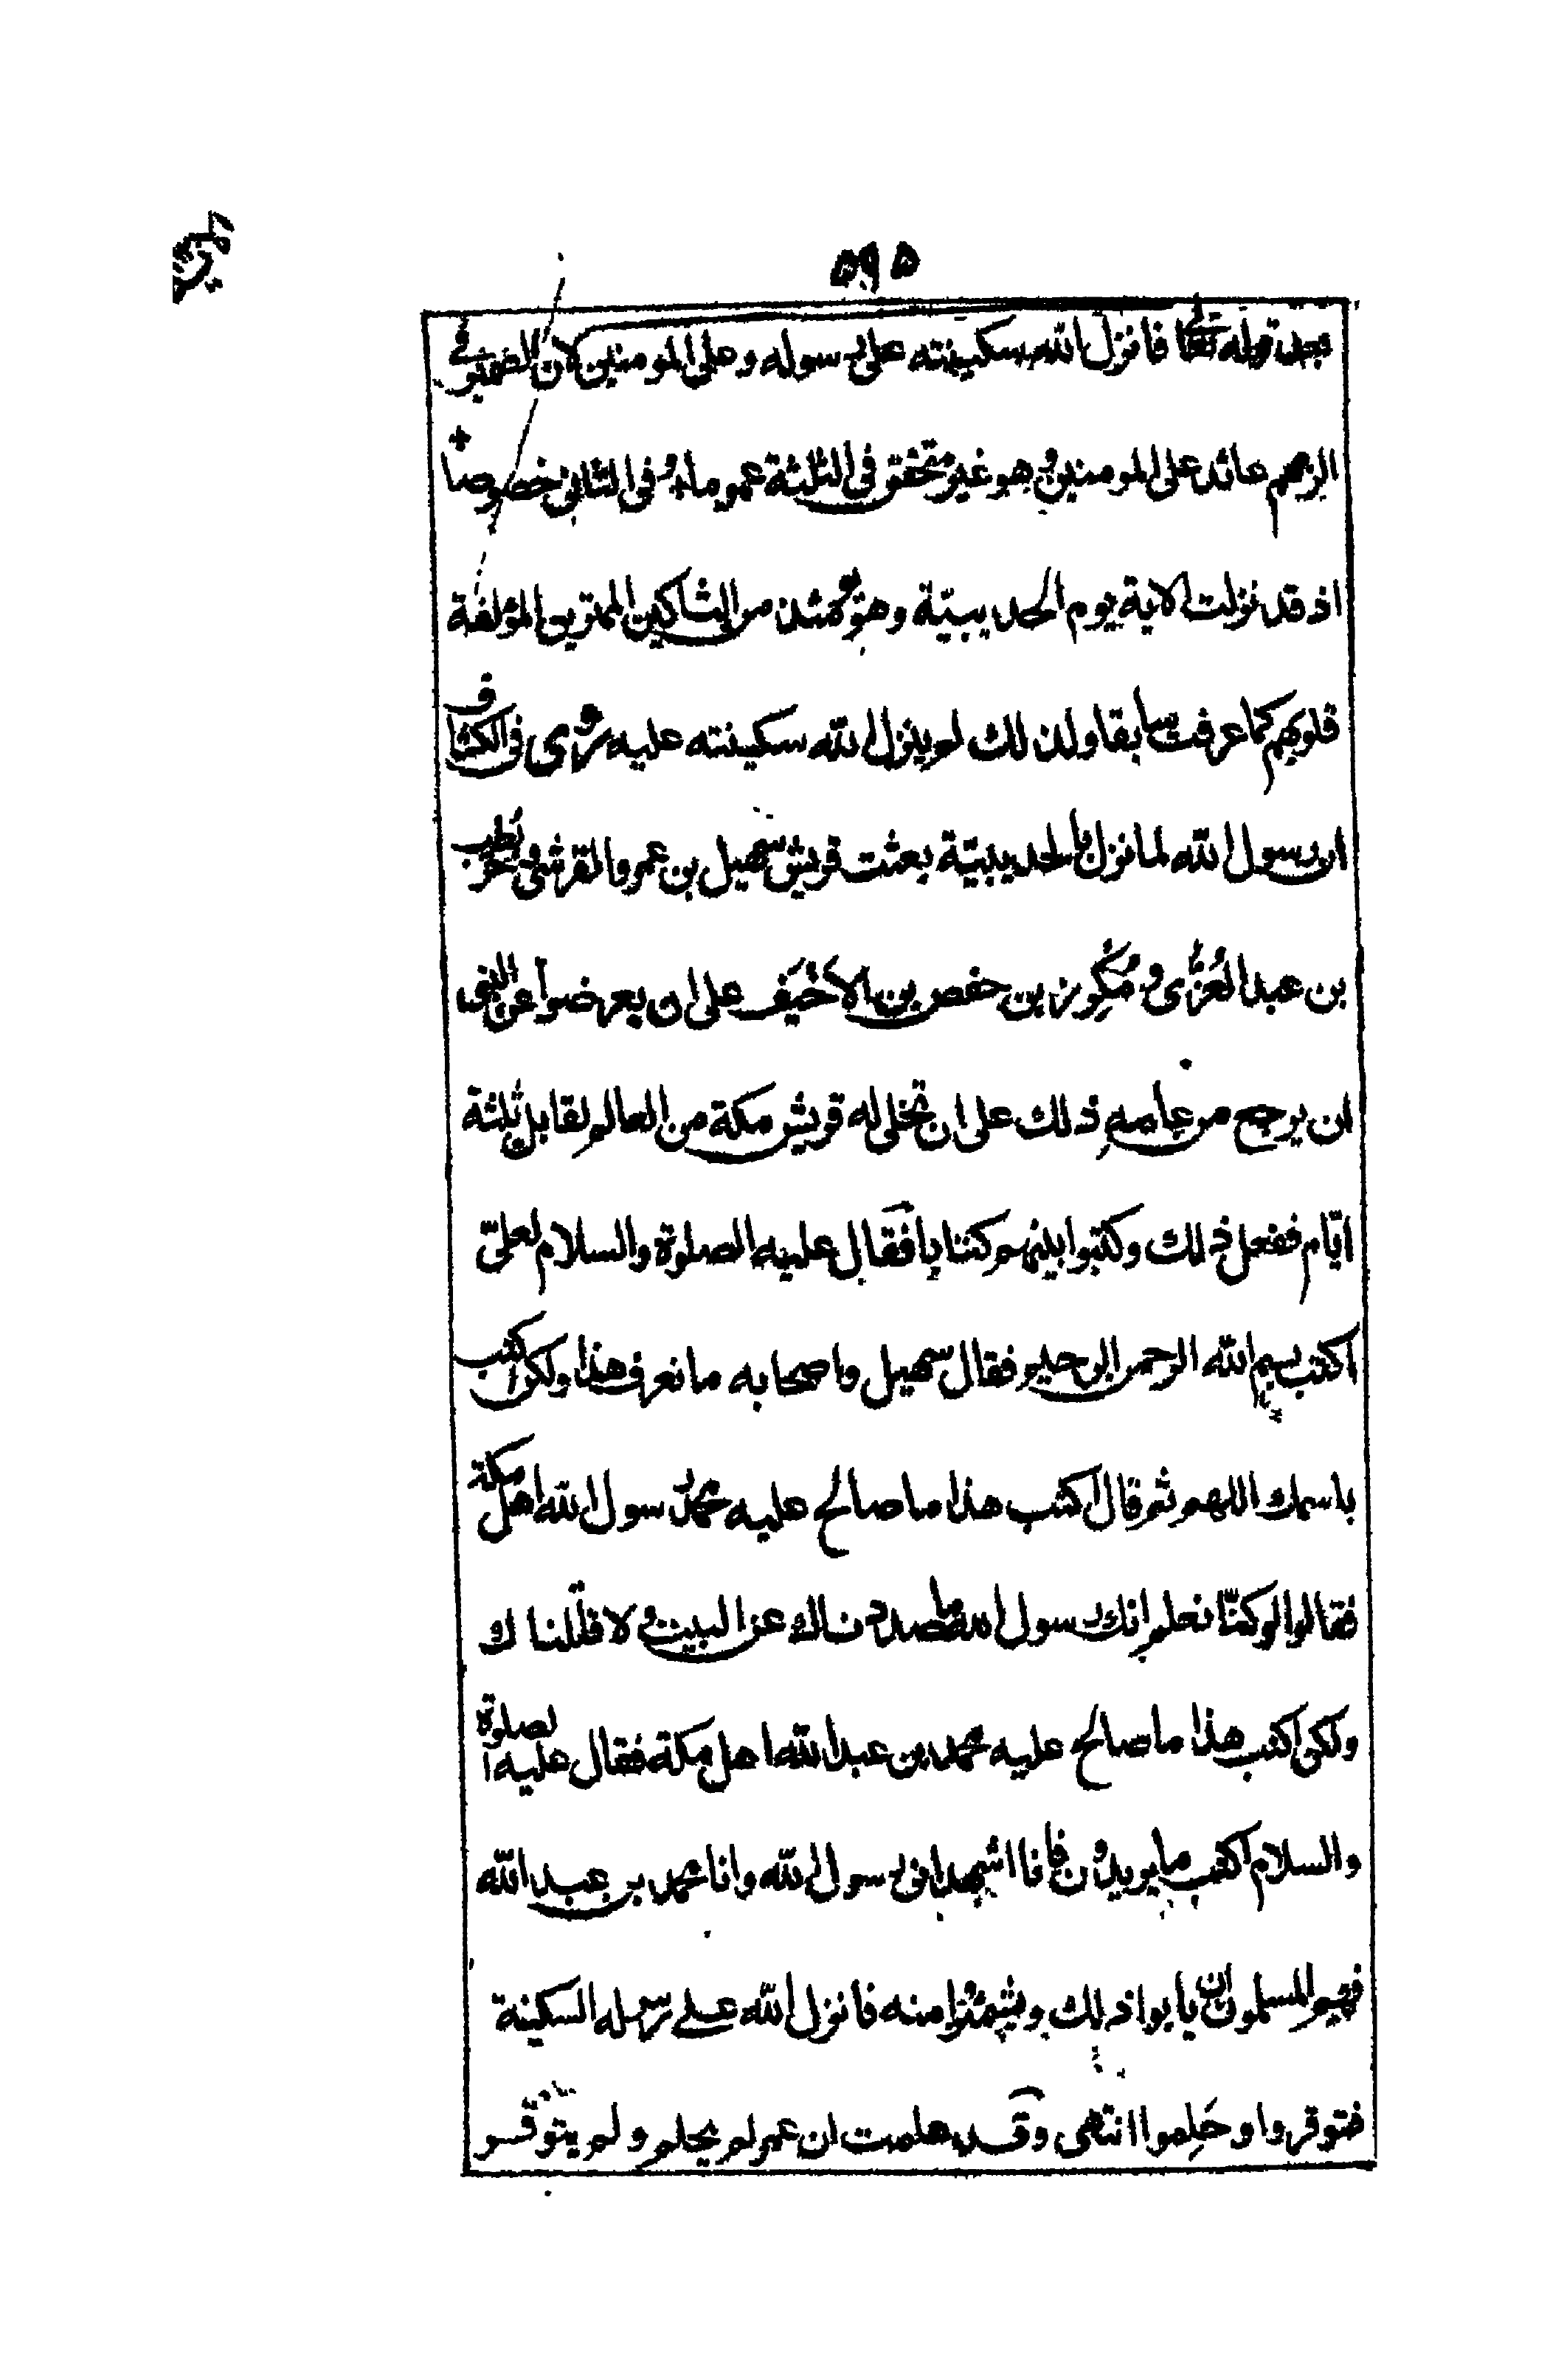 ٥٩٥
بعد قوله تعالى فانزل الله سكينته على رسوله وعلى المومنين لان الضمير في
الزمهم عائد على المومنين وهو غير متحقق في الثلثة عموما وفي الثاني خصوصا
اذ قد نزلت الاية يوم الحديبيّة وهو يومئذ من الشاكين الممترين المؤلفة
قلوبهم كما عرفت سابقا ولذلك لم ينزل الله سكينته عليه روى في الكشاف
ان رسول الله لما نزل بالحديبيّة بعثت قريش سهيل بن عمرو القرشى وحويطب
بن عبد العُزّى ومُكرِز بن حفص بن الاَخيَف على ان يعرضوا عن النبى
ان يرجع من عامه ذلك على ان تخلى له قريش مكة من العالم لقابل ثلثة
ايّام ففعل ذلك وكتبوا بينهم كتابا فقال عليه الصلوة والسلام لعلىّ
اكتب بسم الله الرحمن الرحيم فقال سهيل واصحابه ما نعرف هذا ولكن اكتب
باسمك اللهم ثم قال اكتب هذا ما صالح عليه محمد رسول الله اهل مكة
فقالوا لو كنّا نعلم انك رسول الله ما صددناك عن البيت ولا قاتلناك
ولكن اكتب هذا ما صالح عليه محمد بن عبد الله اهل مكة فقال عليه الصلوة
والسلام اكتب ما يريدون فانا اشهد انى رسول الله وانا محمد بن عبد الله
فهم المسلمون ان يابوا ذلك ويشمئزوا منه فانزل الله على رسوله السكينة
فتوقروا وحَلِموا انتهى وقد علمت ان عمر لم يحلم ولم يتوقر